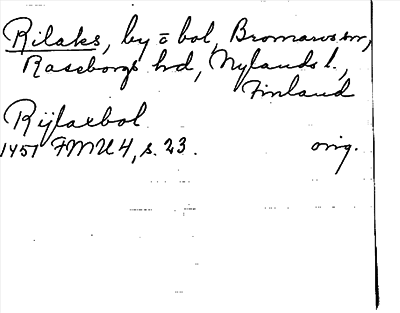 Rilaks, by o bol, Bromarvs sn,
Raseborgs hd, Nylands l.,
Finland
Rijlaxbol
1451 FMU 4, s. 23. orig.